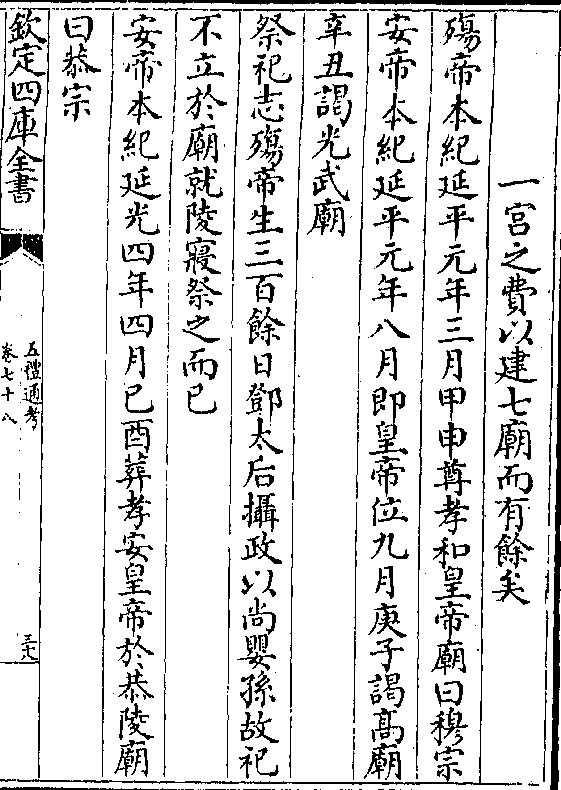 一宫之費以建七廟而有餘矣
殤帝本紀延平元年三月甲申尊孝和皇帝廟曰穆宗
安帝本紀延平元年八月即皇帝位九月庚子謁髙廟
辛丑謁光武廟
祭祀志殤帝生三百餘日鄧太后攝政以尚嬰孫故祀
不立於廟就陵寢祭之而已
安帝本紀延光四年四月已酉葬孝安皇帝於恭陵廟
曰恭宗
欽定四庫全書
五禮通考
卷七十八
三六